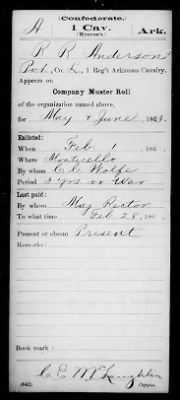 (Confederate.)
A 1 Cav. Ark.
(Monroe's.)
R R Anderson
Pvt, Co. K, 1 Reg't Arkansas Cavalry.
Appears on
Company Muster Roll
of the organization named above,
for May & June, 1863.
Enlisted:
When Feb 1, 186
Where Monticello
By whom C. C. Wolfe
Period 3 yrs or War
Last paid:
By whom Maj Rector
To what time Feb 28, 186
Present or absent Present
Remarks:
Book mark:
C. E. McLaughlin
(642) Copyist.